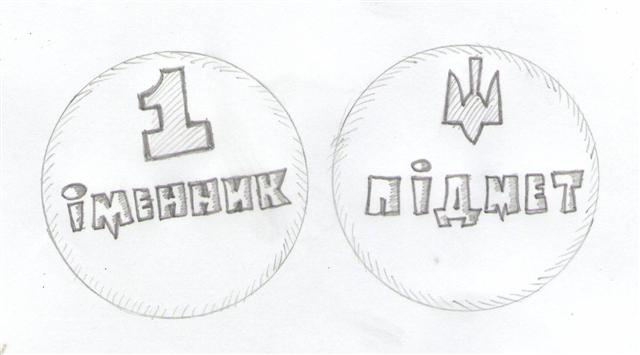 1
іменник
підмет